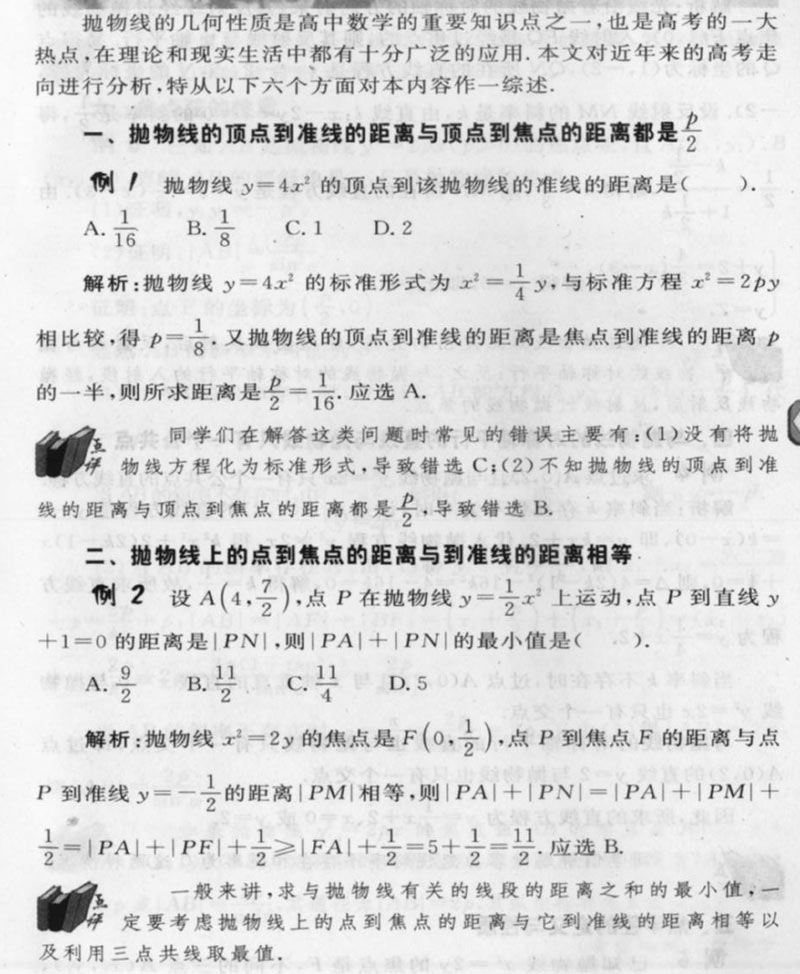 抛物线的几何性质是高中数学的重要知识点之一,也是高考的一大
热点,在理论和现实生活中都有十分广泛的应用.本文对近年来的高考走
向进行分析,特从以下六个方面对本内容作一综述.
一、抛物线的顶点到准线的距离与顶点到焦点的距离都是p/2
例1 抛物线 y=4x² 的顶点到该抛物线的准线的距离是( ).
A. 1/16 B. 1/8 C. 1 D. 2
解析:抛物线 y=4x² 的标准形式为 x²=1/4 y,与标准方程 x²=2py
相比较,得 p=1/8.又抛物线的顶点到准线的距离是焦点到准线的距离 p
的一半,则所求距离是p/2=1/16.应选 A.
点评 同学们在解答这类问题时常见的错误主要有:(1)没有将抛
物线方程化为标准形式,导致错选 C;(2)不知抛物线的顶点到准
线的距离与顶点到焦点的距离都是p/2,导致错选 B.
二、抛物线上的点到焦点的距离与到准线的距离相等
例2 设 A(4,7/2),点 P 在抛物线 y=1/2 x² 上运动,点 P 到直线 y
+1=0 的距离是|PN|,则|PA|+|PN|的最小值是( ).
A. 9/2 B. 11/2 C. 11/4 D. 5
解析:抛物线 x²=2y 的焦点是 F(0,1/2),点 P 到焦点 F 的距离与点
P 到准线 y=-1/2的距离|PM|相等,则|PA|+|PN|=|PA|+|PM|+
1/2=|PA|+|PF|+1/2≥|FA|+1/2=5+1/2=11/2.应选 B.
点评 一般来讲,求与抛物线有关的线段的距离之和的最小值,一
定要考虑抛物线上的点到焦点的距离与它到准线的距离相等以
及利用三点共线取最值.